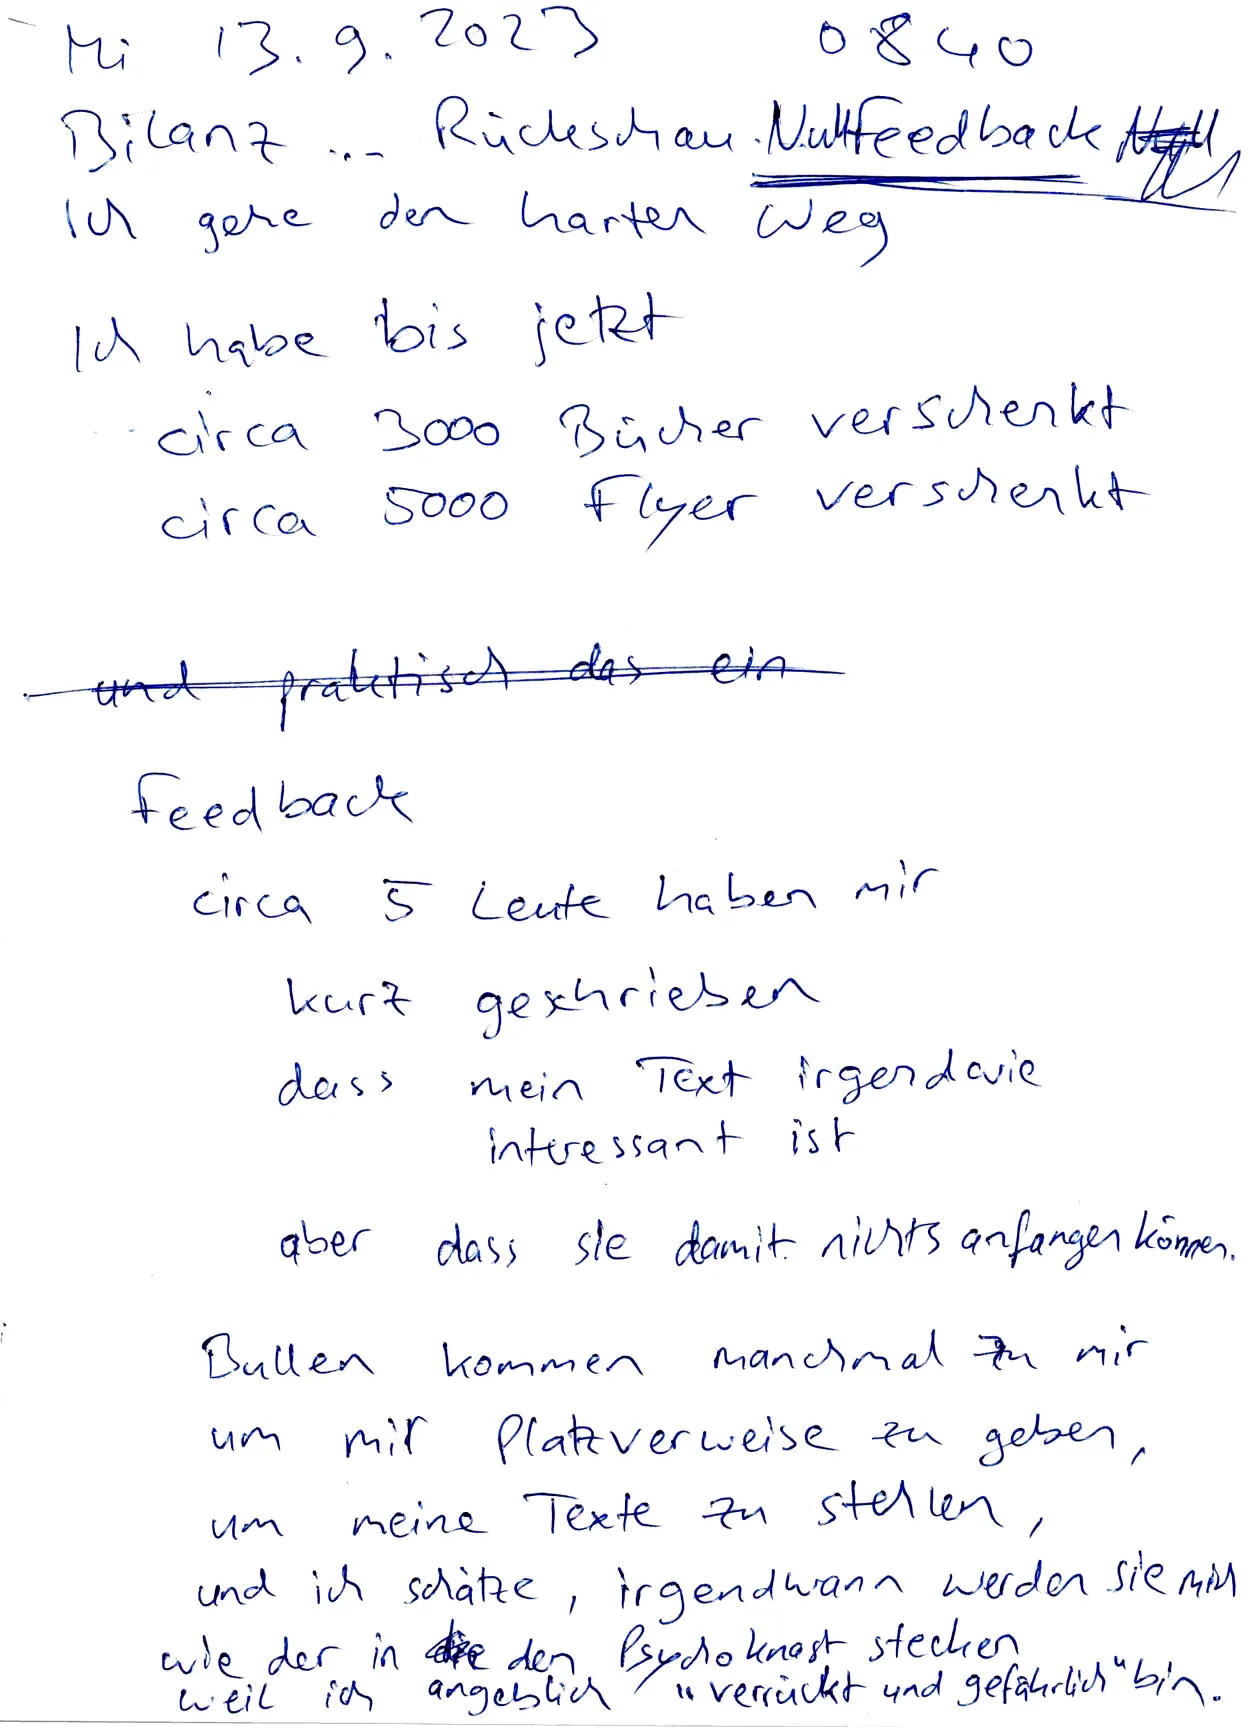 Mi 13.9.2023 0840
Bilanz ... Rückschau. Nullfeedback
Ich gehe den harten Weg
Ich habe bis jetzt
circa 3000 Bücher verschenkt
circa 5000 Flyer verschenkt
und praktisch das ein
Feedback
circa 5 Leute haben mir
kurz geschrieben
dass mein Text irgendwie
interessant ist
aber dass sie damit nichts anfangen können.
Bullen kommen manchmal zu mir
um mir Platzverweise zu geben,
um meine Texte zu stehlen,
und ich schätze, irgendwann werden sie mich
wieder in den Psychoknast stecken
weil ich angeblich "verrückt und gefährlich" bin.